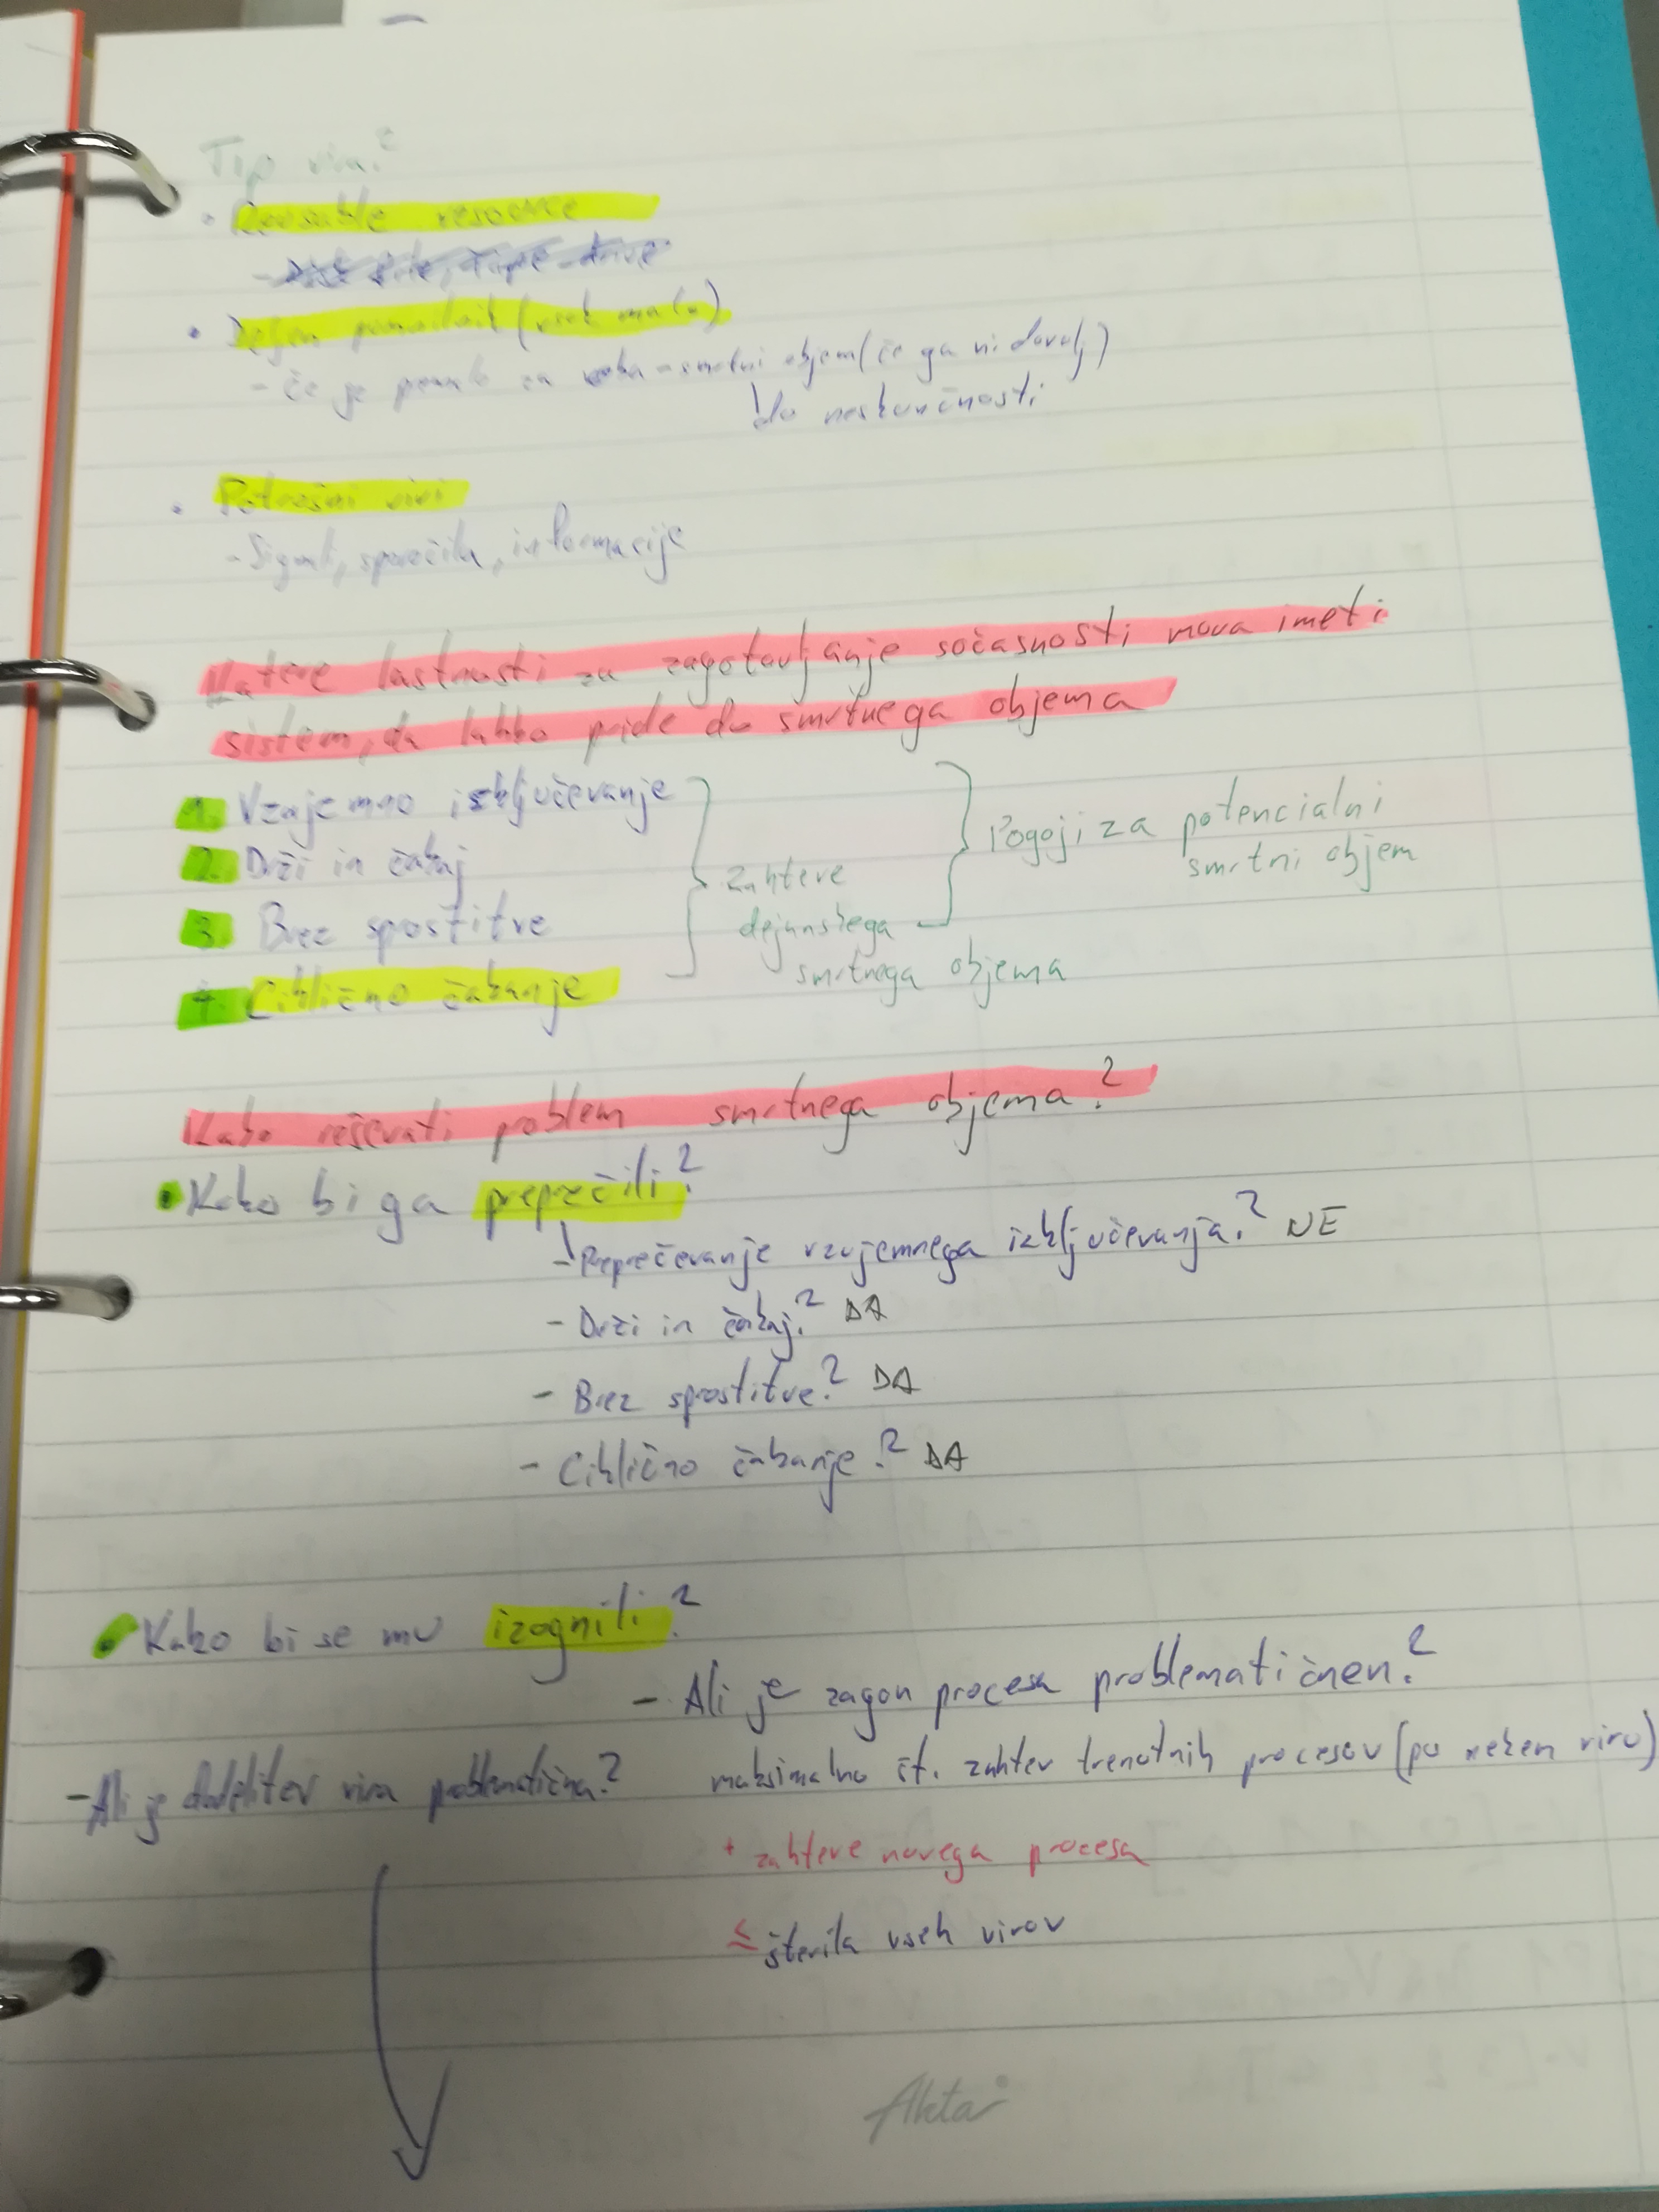 Tip vira?
• Reusable resource
- Disk file, tape drive
• Delen pomnilnik (vsek ma(x)
- če je za smrtni objem (če ga ni dovolj)
do neskončnosti
• Potrošni viri
- Signali, sporočila, informacije
Katere lastnosti za zagotavljanje sočasnosti mora imeti
sistem, da lahko pride do smrtnega objema
1. Vzajemno izključevanje
2. Drži in čakaj
3. Brez sprostitve
4. Ciklično čakanje
Zahteve
dejanskega
smrtnega objema
Pogoji za potencialni
smrtni objem
Kako reševati problem smrtnega objema?
• Kako bi ga preprečili?
- Preprečevanje vzajemnega izključevanja? NE
- Drži in čakaj? DA
- Brez sprostitve? DA
- Ciklično čakanje? DA
• Kako bi se mu izognili?
- Ali je zagon procesa problematičnen?
maksimalno št. zahtev trenutnih procesov (po nekem viru)
+ zahteve novega procesa
≤ števila vseh virov
- Ali je dodelitev vira problematična?
Akta